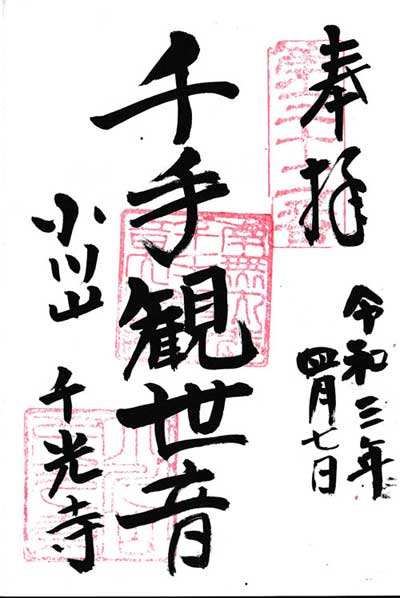 奉拝
令和三年
四月七日
千手観世音
小川山
千光寺